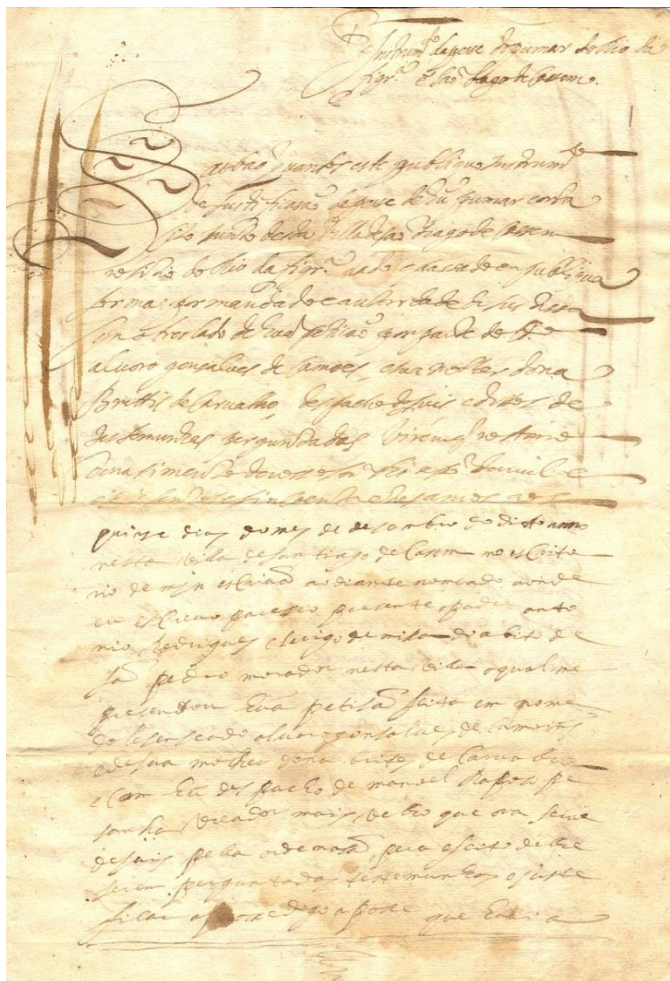 Instrumto de posse do pumar do Rio da
figrª e são tiago de cacem.
Saibão quantos este publico instrumto
de justificasão de posse de hũ pumar
sito junto desta villa de são tiago de cacem
no sitio do Rio da figrª dado e pasado em publica
forma por mandado e autoridade de justisa
com o treslado de hua petisão por parte de
alvoro gonsalves de camoes, e sua molher dona
Brittis de Carvalho, despacho do juis e dittos de
testemunhas perguntadas virem que no anno
do nasimento de nosso sor Jesu xpo de mil e
e sinquenta e tres annos aos
quinse dias do mes de desembro do ditto anno
nesta villa de santiago de Casem no escrito
rio de mjn escrivão ao diante nomeado aonde
eu escrivo pareseo presente o padre anto
nio Rodrigues clerigo de misa do abito de
são pedro morador nesta villa o qual me
presentou hua petisão feita em nome
de alvoro gonsalves de camois
e de sua molher dona brites de Carvalho
e com hũ despacho de manoel Raposo pe
sanha, vreador mais velho que ora serve
de juis pella ordenasão, pera efeito de lhe
serem perguntadas testemunhas e justi
ficar a posse digo a posse que tinha